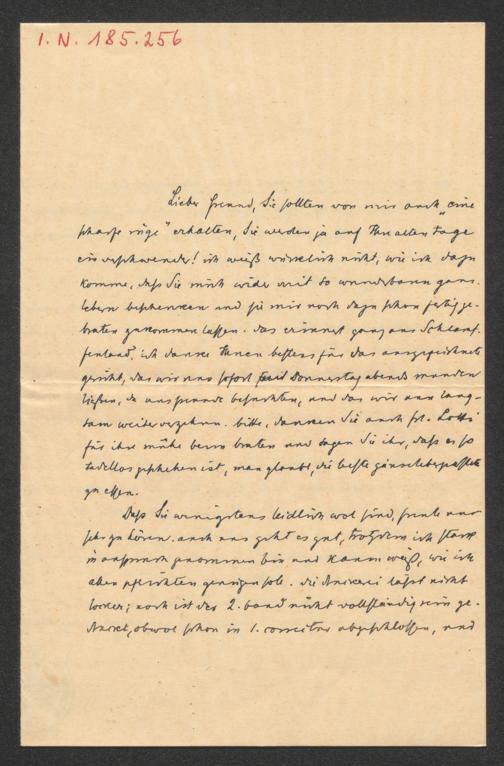 I. N. 185.256
Lieber freund, Sie sollten von mir auch "eine
scharfe rüge" erhalten, Sie werden ja auf Ihre alten tage
ein verschwender! ich weiß würklich nicht, wie ich dazu
komme, daß Sie mich wider mit so wunderbaren gans-
lebern beschenken und sie mir noch dazu schon fertig ge-
braten zukommen lassen. das erinnert ganz ans Schlaraf-
fenland. ich danke Ihnen bestens für das ausgezeichnete
gericht, das wir uns sofort Donnerstag abends munden
ließen, da uns freunde besuchten, und das wir nun lang-
sam weiter verzehren. bitte, danken Sie auch frl. Lotti
für ihre mühe beim braten und sagen Sie ihr, daß es so
tadellos geschehen ist, man glaubt, die beste gänseleberpastete
zu essen.
Daß Sie wenigstens leidlich wol sind, freute uns
sehr zu hören. auch uns geht es gut, trotzdem ich stark
in anspruch genommen bin und kaum weiß, wie ich
allen pflichten genügen sol. die druckerei läßt nicht
locker; noch ist der 2. band nicht vollständig rein ge-
druckt, obwol schon in 1. correctur abgeschlossen, und